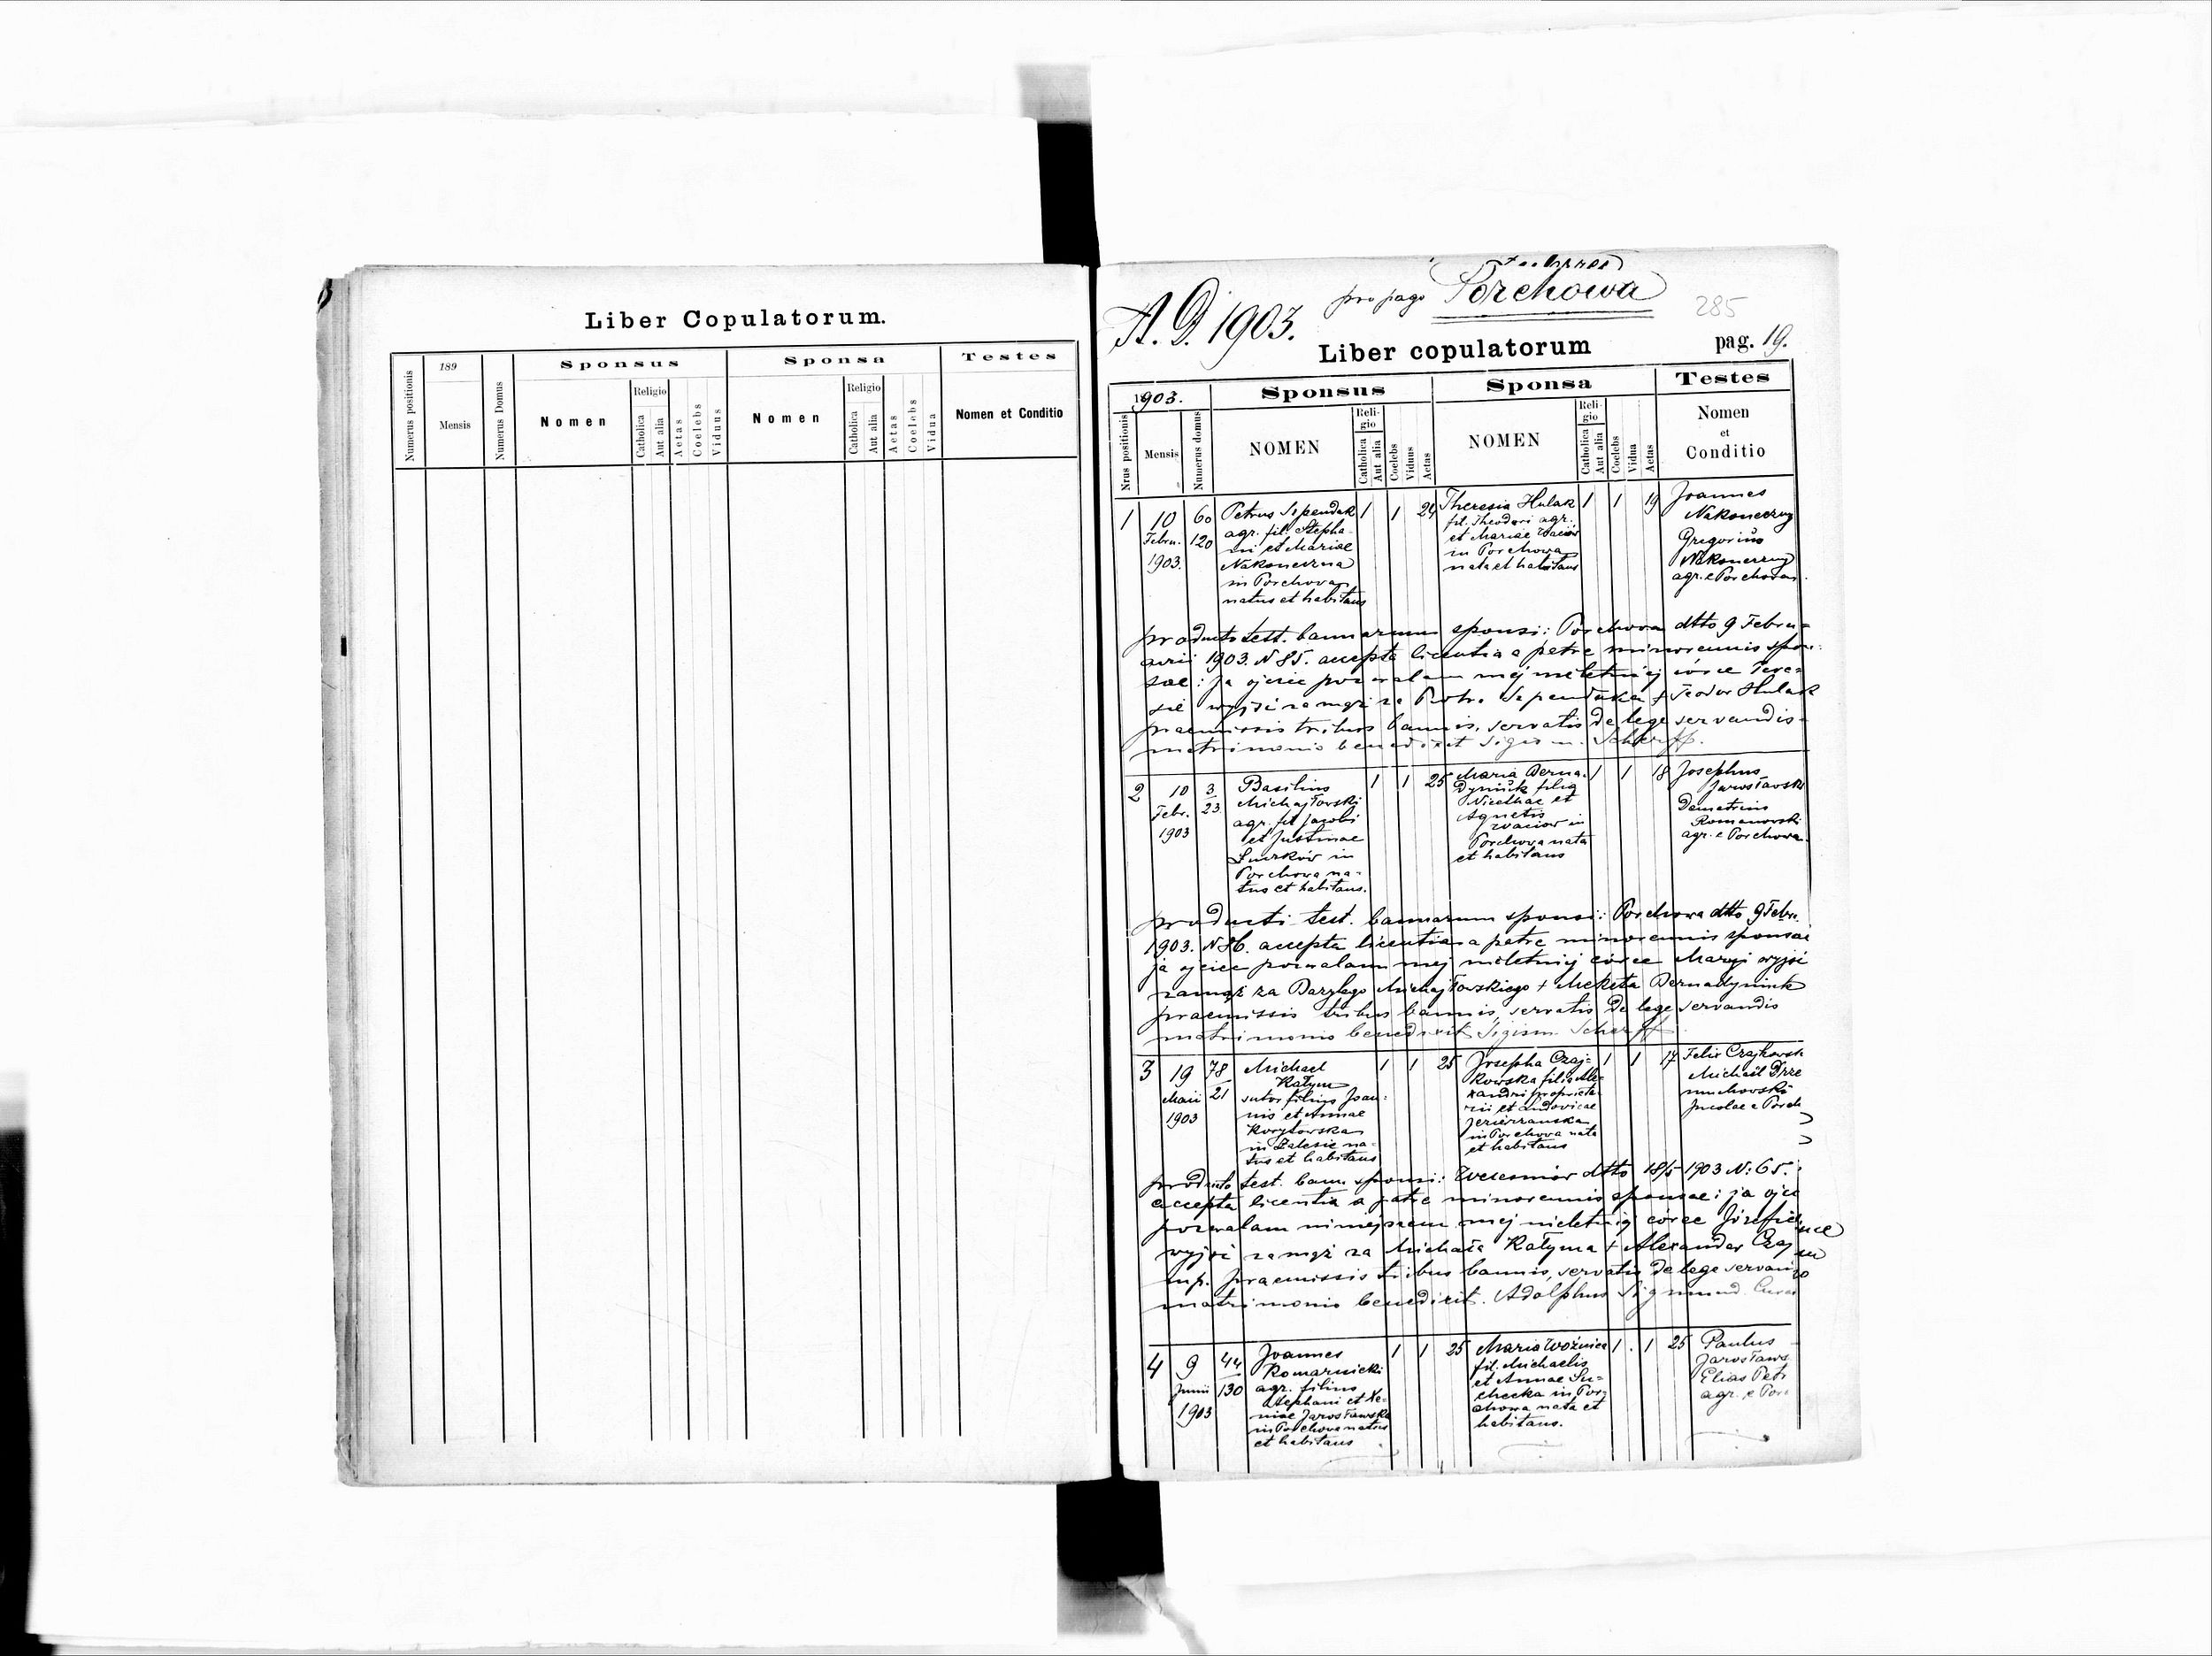 Liber Copulatorum.
Numerus positionis
189
Mensis
Numerus Domus
Sponsus
Nomen
Religio
Catholica
Aut alia
Aetas
Coelebs
Viduus
Sponsa
Nomen
Religio
Catholica
Aut alia
Aetas
Coelebs
Vidua
Testes
Nomen et Conditio
A. D. 1903.
pro pago Porchowa
285
Liber copulatorum
pag. 19.
Nrus positionis
1903.
Mensis
Numerus domus
Sponsus
NOMEN
Reli-
gio
Catholica
Aut alia
Coelebs
Viduus
Aetas
Sponsa
NOMEN
Reli-
gio
Catholica
Aut alia
Coelebs
Vidua
Aetas
Testes
Nomen
et
Conditio
1
10
Febru.
1903.
60
120
Petrus
agr. fil. Stepha-
ni et Mariae
Nakoneczna
in Porchova
natus et habitans
1
1
24
Theresia Hulak
fil. Theodori agr.
et Mariae
in Porchowa
nata et habitans
1
1
19
Joannes
Nakoneczny
Gregorius
Nakoneczny
agr. e Porchowa.
producto test. bannorum sponsi: Porchowa dtto 9 Febru-
arii 1903. N 85. accepta licentia a patre minorennis spon-
sae: ja ojciec pozwalam mej nieletniej córce Tere-
sie wyjść za mąż za Piotra + Teodor Hulak
praemissis tribus bannis, servatis de lege servandis
matrimonio benedixit Sigism. Scherff.
2
10
Febr.
1903
3
23
Basilius
Michajłowski
agr. fil Jacobi
et Justinae
in
Porchowa na-
tus et habitans.
1
1
25
Maria Berna-
dyniuk filia
Nicethae et
Agnetis
in
Porchova nata
et habitans
1
1
18
Josephus
Jarosławski
Demetrius
Romanowski
agr. e Porchowa.
producti test. bannorum sponsi: Porchowa dtto 9 Febr.
1903. N 86. accepta licentia a patre minorennis sponsae
ja ojciec pozwalam mej nieletniej córce Maryi wyjść
zamąż za Bazylego Michajłowskiego + Mekieta Bernadyniuk
praemissis tribus bannis, servatis de lege servandis
matrimonio benedixit Sigism Scherff
3
19
Maii
1903
78
21
Michael
Kałym
sutor filius Joan-
nis et Annae
Korytowska
in Zalesie na-
tus et habitans
1
1
25
Josepha Czaj-
kowska filia Ale-
xandri proprieta-
rii et Ludovicae
Jezierzanska
in Porchowa nata
et habitans
1
1
17
Felix Czajkowsk
Michael Prze
muchowski
Incolae e Porch
producto test. bann sponsi: dtto 18/5 1903 N: 65.
accepta licentia a patre minorennis sponsae: ja ojci
pozwalam niniejszem mej nieletniej córce Józefie
wyjść zamąż za Michała Kałyma + Alexander Czaj
mp. praemissis tribus bannis, servatis de lege servan
matrimonio benedixit. Adolphus Sigmund.
4
9
Junii
1903
44
130
Joannes
Romarnicki
agr. filius
Stephani et Xe-
niae Jarosławska
in Porchowa natus
et habitans
1
1
25
Maria Woźnica
fil. Michaelis
et Annae Su-
checka in Por-
chowa nata et
habitans.
1
1
25
Paulus
Jarosławs
Elias Petr
agr. e Por